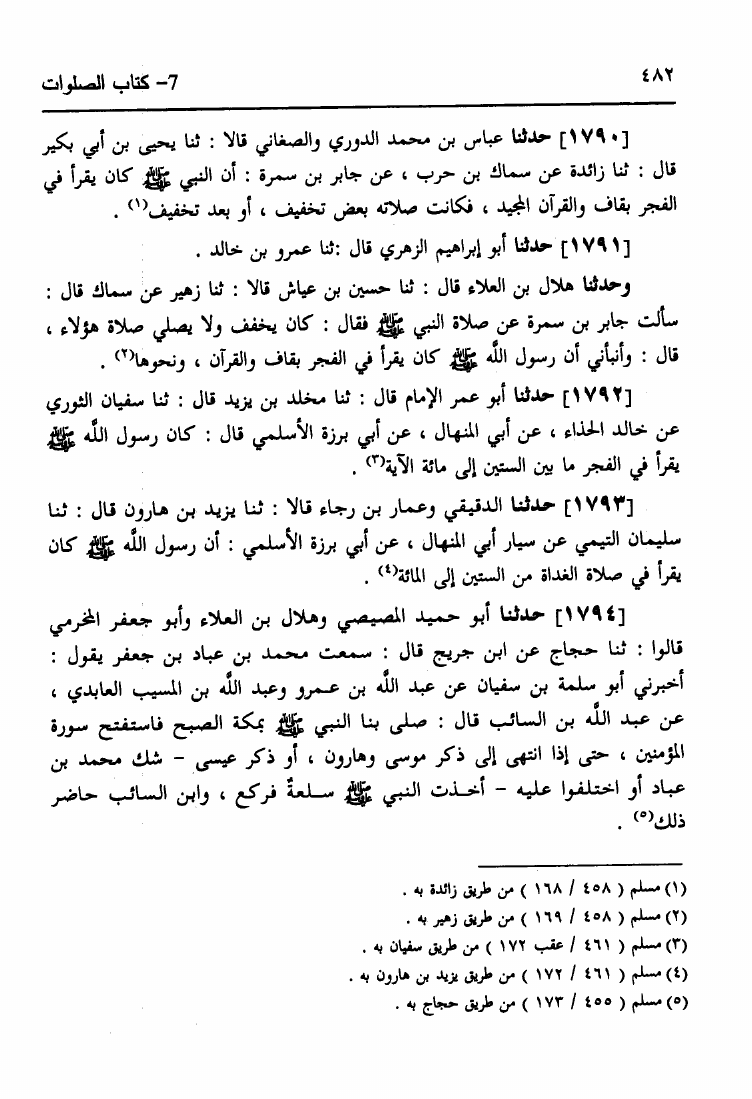 ٤٨٢
7- كتاب الصلوات
[١٧٩٠] حدثنا عباس بن محمد الدوري والصغاني قالا : ثنا يحيى بن أبي بكير
قال : ثنا زائدة عن سماك بن حرب ، عن جابر بن سمرة : أن النبي ﷺ كان يقرأ في
الفجر بقاف والقرآن المجيد ، فكانت صلاته بعض تخفيف ، أو بعد تخفيف(١) .
[١٧٩١] حدثنا أبو إبراهيم الزهري قال :ثنا عمرو بن خالد .
وحدثنا هلال بن العلاء قال : ثنا حسين بن عياش قالا : ثنا زهير عن سماك قال :
سألت جابر بن سمرة عن صلاة النبي ﷺ فقال : كان يخفف ولا يصلي صلاة هؤلاء ،
قال : وأنبأني أن رسول اللَّه ﷺ كان يقرأ في الفجر بقاف والقرآن ، ونحوها(٢) .
[١٧٩٢] حدثنا أبو عمر الإمام قال : ثنا مخلد بن يزيد قال : ثنا سفيان الثوري
عن خالد الحذاء ، عن أبي المنهال ، عن أبي برزة الأسلمي قال : كان رسول اللَّه ﷺ
يقرأ في الفجر ما بين الستين إلى مائة الآية(٣) .
[١٧٩٣] حدثنا الدقيقي وعمار بن رجاء قالا : ثنا يزيد بن هارون قال : ثنا
سليمان التيمي عن سيار أبي المنهال ، عن أبي برزة الأسلمي : أن رسول اللَّه ﷺ كان
يقرأ في صلاة الغداة من الستين إلى المائة(٤) .
[١٧٩٤] حدثنا أبو حميد المصيصي وهلال بن العلاء وأبو جعفر المخرمي
قالوا : ثنا حجاج عن ابن جريج قال : سمعت محمد بن عباد بن جعفر يقول :
أخبرني أبو سلمة بن سفيان عن عبد اللَّه بن عمرو وعبد اللَّه بن المسيب العابدي ،
عن عبد اللَّه بن السائب قال : صلى بنا النبي ﷺ بمكة الصبح فاستفتح سورة
المؤمنين ، حتى إذا انتهى إلى ذكر موسى وهارون ، أو ذكر عيسى – شك محمد بن
عباد أو اختلفوا عليه – أخذت النبي ﷺ سلعةٌ فركع ، وابن السائب حاضر
ذلك(٥) .
(١) مسلم ( ٤٥٨ / ١٦٨ ) من طريق زائدة به .
(٢) مسلم ( ٤٥٨ / ١٦٩ ) من طريق زهير به .
(٣) مسلم ( ٤٦١ / عقب ١٧٢ ) من طريق سفيان به .
(٤) مسلم ( ٤٦١ / ١٧٢ ) من طريق يزيد بن هارون به .
(٥) مسلم ( ٤٥٥ / ١٧٣ ) من طريق حجاج به .